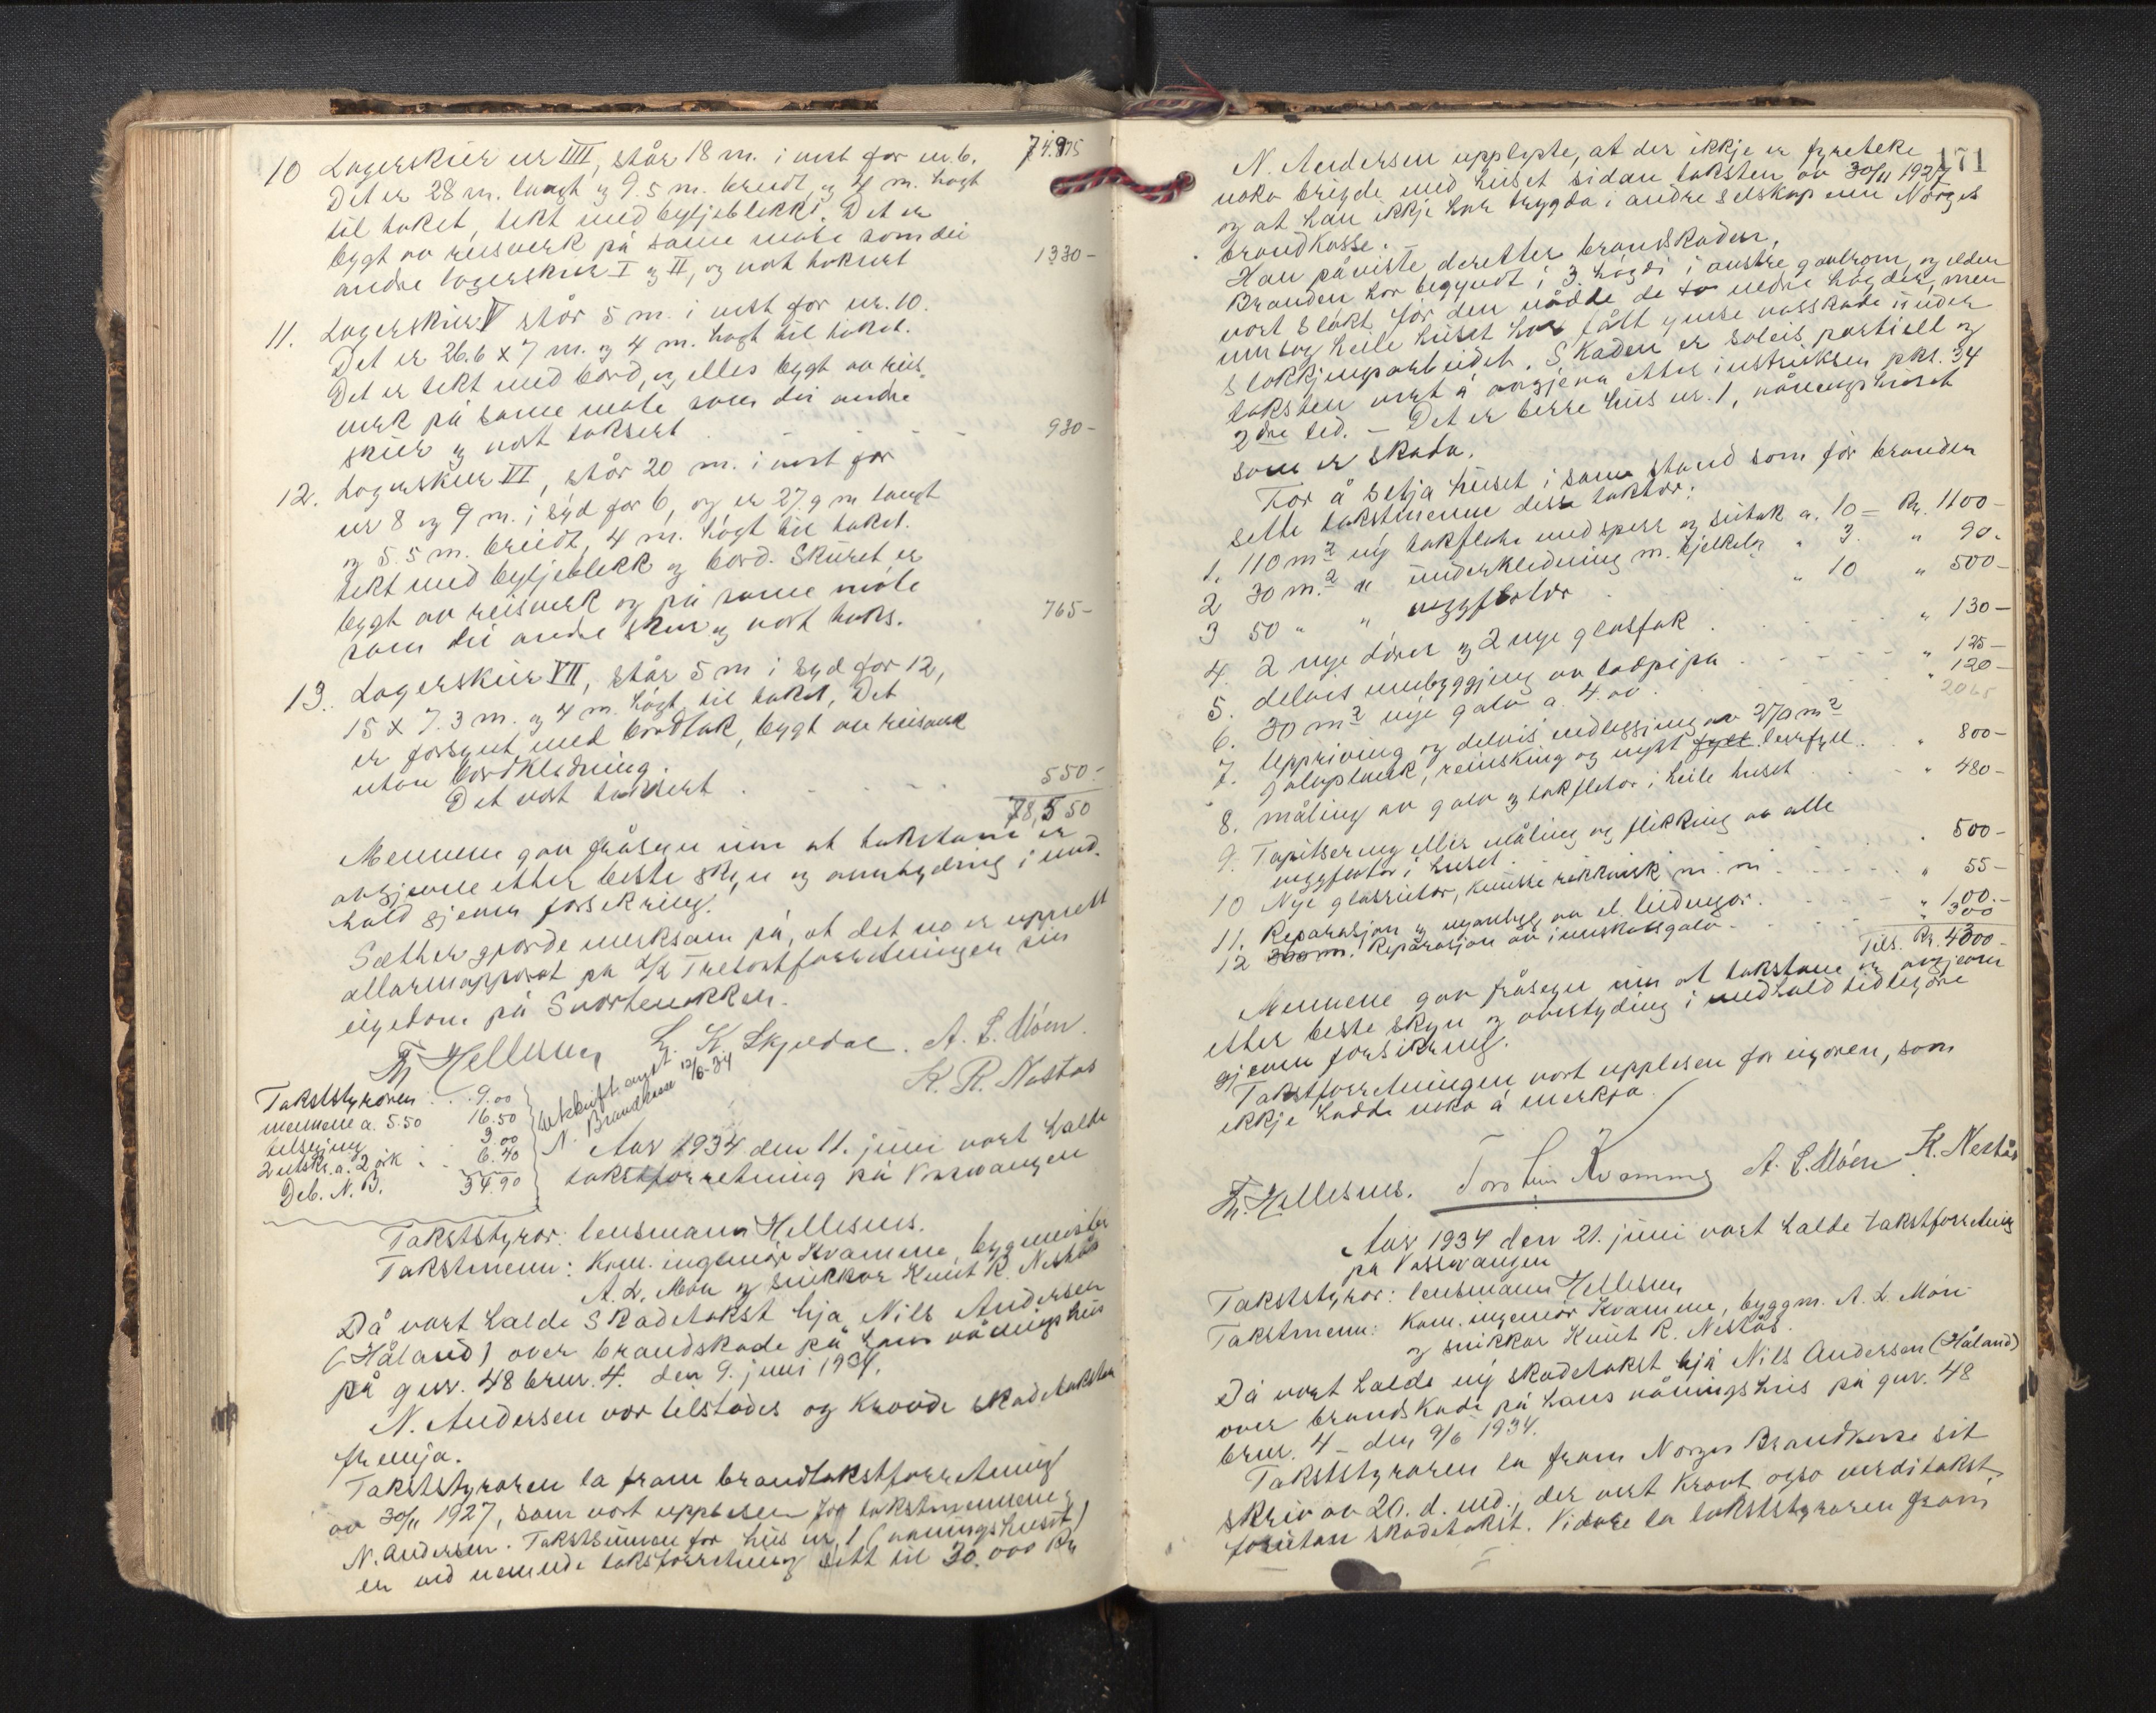 74.975
10 Lagerskur nr IIII, står 18 m. i vest for nr. 6.
Det er 28 m. langt og 9.5 m. breidt og 4 m. høgt
til taket, tekt med bylgjeblekk. Det er
bygt av reisverk på same måte som dei
andre lagerskur I og II, og vart taksert 1330-
11. Lagerskur V står 5 m. i vest for nr. 10.
Det er 26.6 x 7 m. og 4 m. høgt til taket.
Det er tekt med bord, og elles bygt av reis-
verk på same måte som dei andre
skur og vart taksert - - - - 930-
12. Lagerskur VI, står 20 m. i vest for
nr 8 og 9 m. i syd for 6, og er 27.9 m langt
og 5.5 m. breidt, 4 m. høgt til taket.
tekt med bylgjeblekk og bord. Skuret er
bygt av reisverk og på same måte
som dei andre skur og vart taks. 765-
13. Lagerskur VII, står 5 m i syd for 12,
15 x 7.3 m. og 4 m. høgt til taket, Det
er forsynt med bordtak, bygt av reisverk
utan bordkledning.
Det vart taksert . - - - - 550.-
78,550
Mennene gav fråsegn um at takstane er
avgjevne etter beste skyn og overtyding i med-
hald gjeven forsikring.
Sæther gjorde merksam på, at det no er uppsett
allarmapparat på A/L Tretoktforretningen sin
eigedom på Svartenakken.
Th Hellesnes L. K. Skjeldal. A. L. Móen.
K. R. Nestås
Takststyraren . . 9.00
mennene a. 5.50 16.50
tilseging 3.00
2 utskr. a. 2 ark . . 6.40
Deb. N. B. 34.90
Utskrift sendt
N. Brandkasse 12/6-34
Aar 1934 den 11. juni vart halde
takstforretning på Vossvangen
Takststyrar: lensmann Hellesnes.
Takstmenn: Kom. ingeniør Kvamme, bygmeister
A. L. Móen og snikkar Knut R. Nestås
Då vart halde Skadetakst hjå Nils Andersen
(Håland) over brandskade på hans våningshus
på gnr. 48 brnr. 4. den 9. juni 1934.
N. Andersen var tilstades og kravde skadetaksten
fremja.
Takststyraren la fram brandtakstforretning
av 30/11 1927, som vart upplesen for takstmennene og
N. Andersen. Takstsummen for hus nr. 1 (våningshuset)
er ved nemnde takstforretning sett til 30.000 Kr
171
N. Andersen upplyste, at der ikkje er fyreteke
noko brigde med huset sidan taksten av 30/11 1927
og at han ikkje har trygda i andre selskap enn Norges
brandkasse.
Han påviste deretter brandskaden,
Branden har begyndt i 3. høgdi i austre gavlrom, og elden
vart sløkt før den nådde de to nedre høgder, men
umtog heile huset har fått ymse vasskade under
sløkkjingsarbeidet. Skaden er soleis partiell og
taksten vert å avgjeva etter instruksen pkt. 34
2dre led. - Det er berre hus nr. 1, våningshuset
som er skada.
For å setja huset i same stand som før branden
sette takstmennene desse takstar:
1. 110 m² ny takflate med sperr og sutak a. 10 = Kr. 1100-
2 30 m.² " underkledning m. bjelkelag " 3. " 90.-
3 50 " " veggflatar . " 10 " 500-
4. 2 nye dører og 2 nye glasfak . . . . - - " 130-
5. delvis umbyggjing av tadpipa . . - - - - " 125-
6. 30 m² nye golv a. 4.00 . " 120-
2065
7. Uppriving og delvis nedlegging av 270 m²
golvplank, reinsking og nytt fyll leirfyll. . " 800-
8. måling av golv og takflatar i heile huset . . " 480-
9. Tapitsering eller måling og flikking av alle
veggflatar i huset . . 500-
10 Nye glasrutor, knuste rekkvisk m. m. - - - - " 55-
11. Reparasjon og nyanlegg av el. leidningar. . - - - " 100.-
12 300 m. Reparasjon av innskotsgolv - . . - - " 300
Tils. Kr. 4000-
Mennene gav fråsegn um at takstane er avgjevne
etter beste skyn og overtyding i medhald tidlegare
gjeven forsikring.
Takstforretningen vart upplesen for eigaren, som
ikkje hadde noko å merkja.
Th. Hellesnes. Torstein Kvamme A. L. Móen K. Nestås
Aar 1934 den 21. juni vart halde takstforretning
på Vossevangen
Takststyrar: lensmann Hellesnes
Takstmenn: Kom. ingeniør Kvamme, byggm. A. L. Móen
og snikkar Knut R. Nestås.
Då vart halde ny skadetakst hjå Nils Andersen (Håland)
over brandskade på hans våningshus på gnr. 48
brnr. 4 - den 9/6 1934.
Takststyraren la fram Norges Brandkasse sit
skriv av 20. d. md., der vert kravt også verditakst
forutan skadetakst. Vidare la takststyraren fram